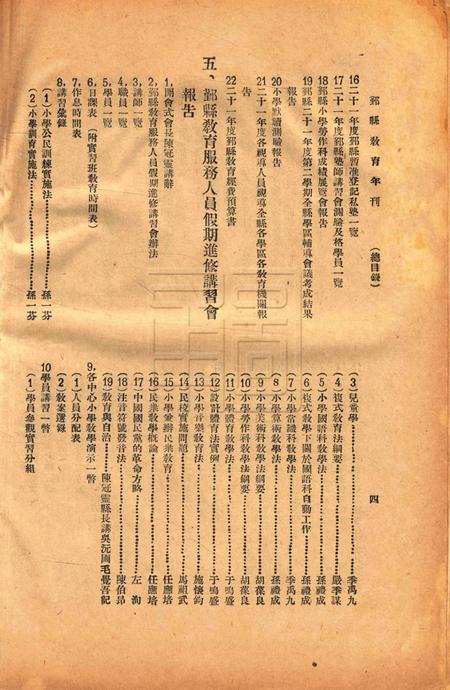 鄞縣教育年刊　（總目錄）　四
16二十一年度鄞縣暫准登記私塾一覽
17二十一年度鄞縣塾師講習會測驗及格學員一覽
18鄞縣小學勞作科成績展覽會報告
19鄞縣二十一年度第二學期全縣學區輔導會議考成結果
報告
20小學默讀測驗報告
21二十一年度各視導人員視導全縣各學區各教育機關報
告
22二十一年度鄞縣教育經費預算書
五、鄞縣教育服務人員假期進修講習會
報告
1,開會式會長陳冠靈講辭
2,鄞縣教育服務人員假期進修講習會辦法
3,講師一覽
4,職員一覽
5,學員一覽
6,日課表（附實習班教育時間表）
7,作息時間表
8,講習彙錄
（1）小學公民訓練實施法…………孫一芬
（2）小學訓育實施法…………孫一芬
（3）兒童學…………季禹九
（4）複式教育法綱要…………嚴季謀
（5）小學國語科教學法…………孫禮成
（6）複式教學下關於國語科自動工作…………孫禮成
（7）小學常識科教學法…………季禹九
（8）小學算術教學法…………孫禮成
（9）小學美術科教學法綱要…………胡葆良
（10）小學勞作科教學法綱要…………胡葆良
（11）小學體育教學法…………于鳴盛
（12）設計體育法實例…………于鳴盛
（13）小學音樂教育法…………施懷鈞
（14）民校實施問題…………馬祖武
（15）小學兼辦民衆教育…………任應培
（16）民衆教學概論…………任應培
（17）中國國民黨的革命方略…………左洵
（18）注音符號發音法…………陳伯昂
（19）教育與自治……陳冠靈縣長講吳沅圃毛覺吾記
9,各中心小學教學演示一瞥
（1）人員分配表
（2）教案選錄
10學員講習一瞥
（1）學員參觀實習分組